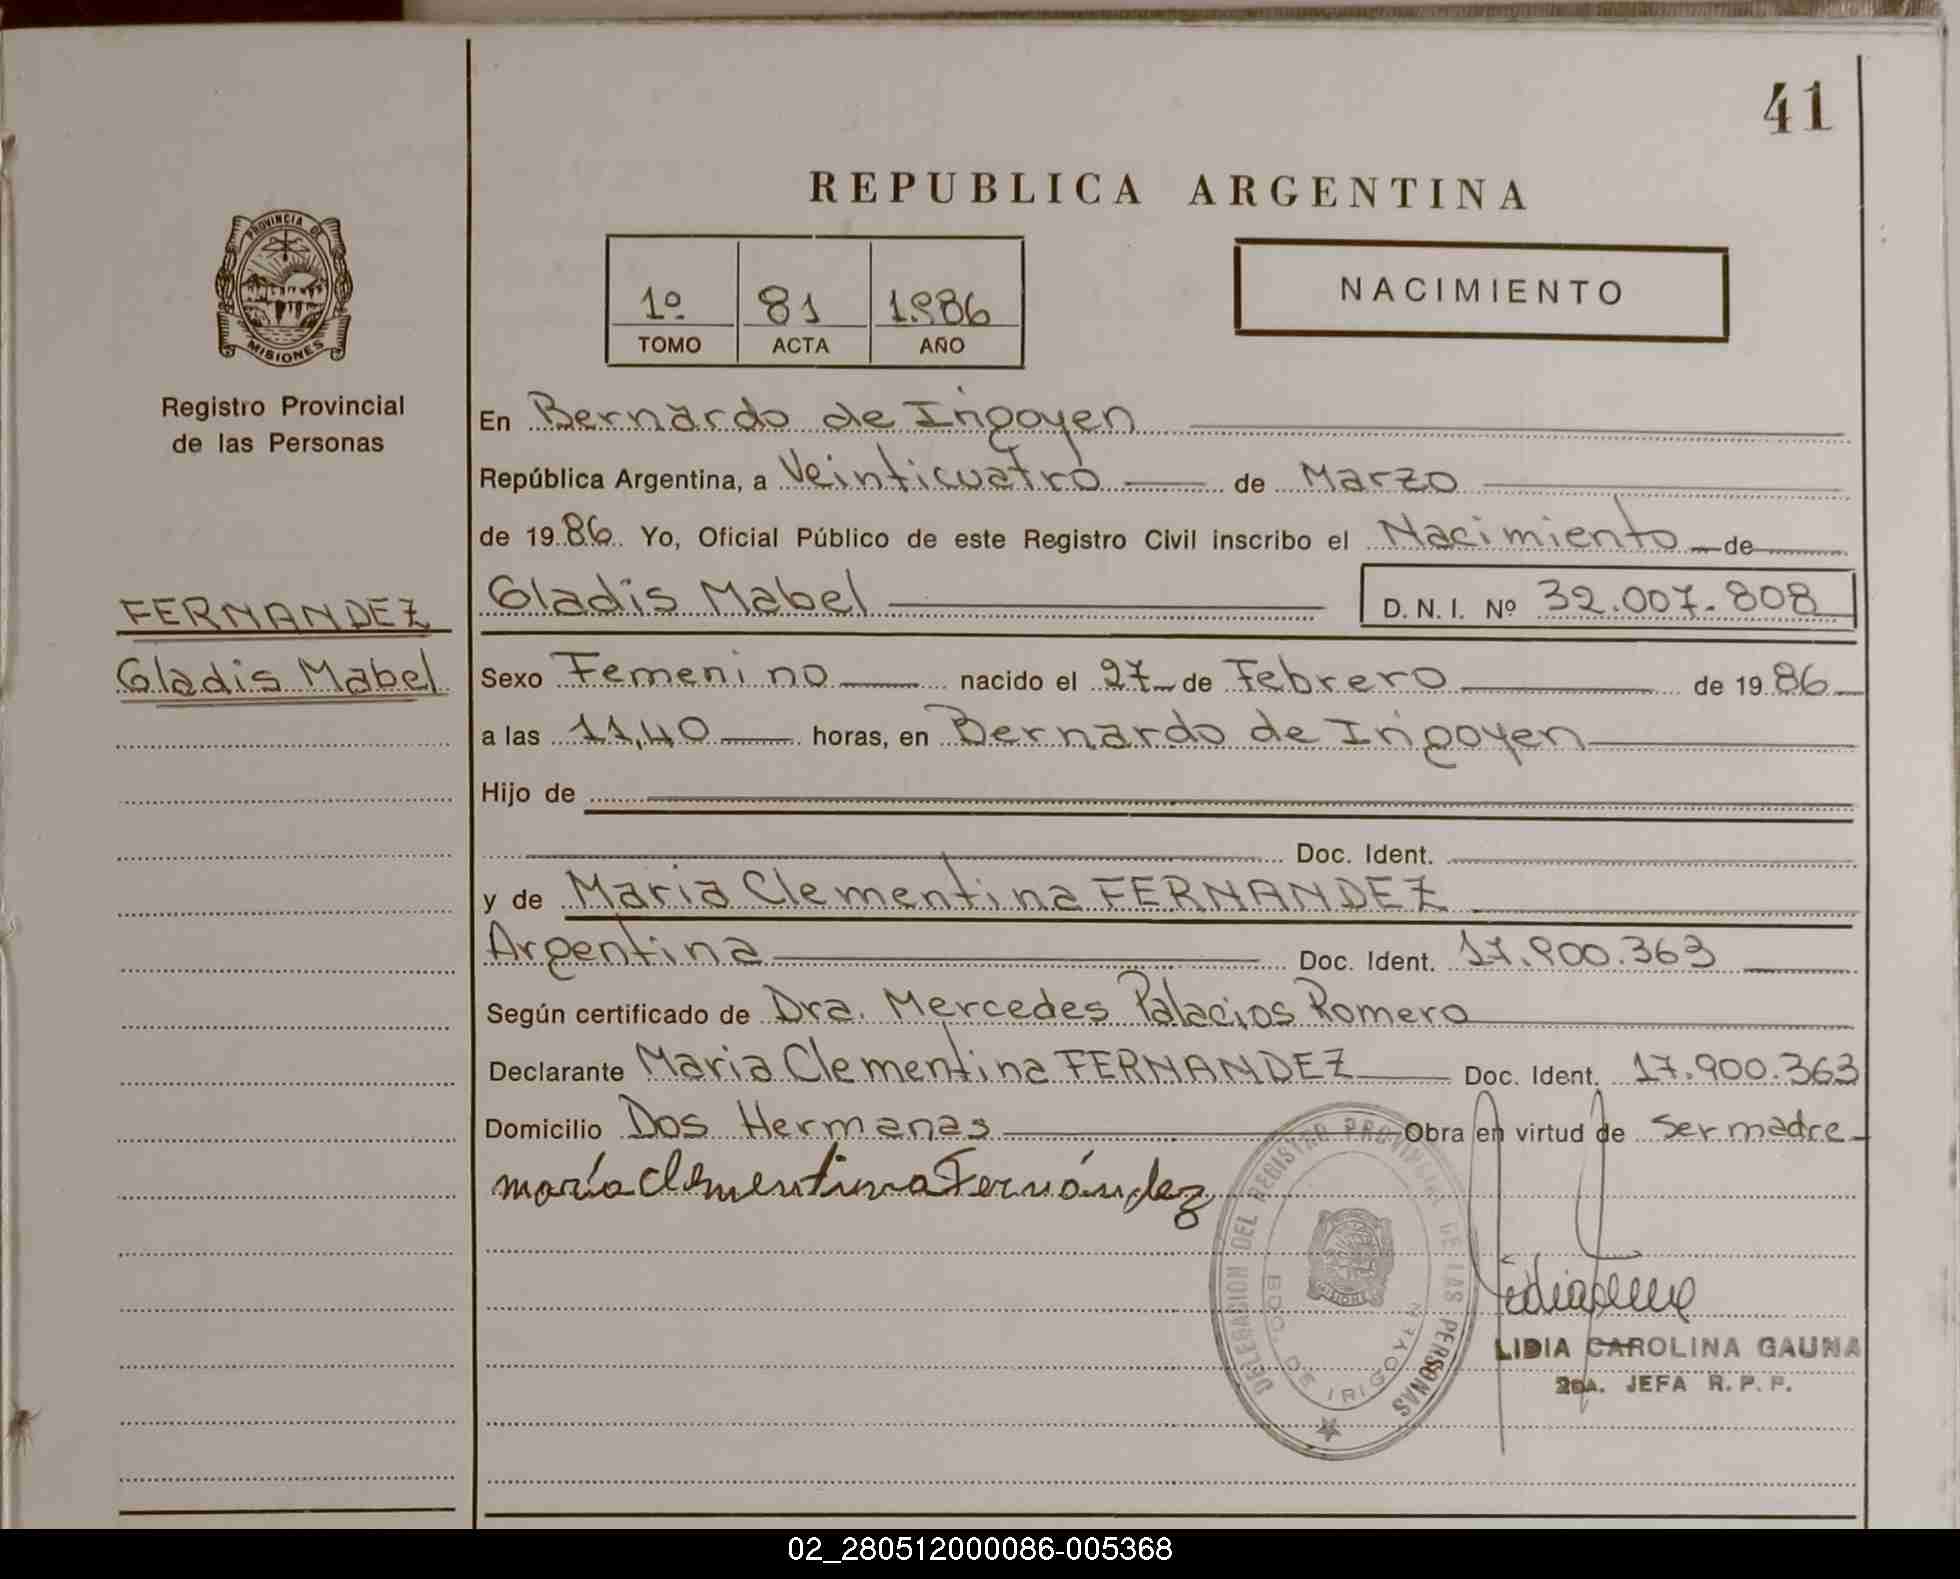 41
REPUBLICA ARGENTINA
PROVINCIA DE
MISIONES
Registro Provincial
de las Personas
1º 81 1986
TOMO ACTA AÑO
NACIMIENTO
En Bernardo de Irigoyen
República Argentina, a Veinticuatro de Marzo
de 1986. Yo, Oficial Público de este Registro Civil inscribo el Nacimiento de
FERNANDEZ
Gladis Mabel
Gladis Mabel D. N. I. Nº 32.007.808
Sexo Femenino nacido el 27 de Febrero de 1986
a las 11,40 horas, en Bernardo de Irigoyen
Hijo de
Doc. Ident.
y de Maria Clementina FERNANDEZ
Argentina Doc. Ident. 17.900.363
Según certificado de Dra. Mercedes Palacios Romero
Declarante Maria Clementina FERNANDEZ Doc. Ident. 17.900.363
Domicilio Dos Hermanas Obra en virtud de Ser madre
maría Clementina Fernández
DELEGACION DEL REGISTRO PROVINCIAL DE LAS PERSONAS
BDO. DE IRIGOYEN
MISIONES
LIDIA CAROLINA GAUNA
2da. JEFA R. P. P.
02_280512000086-005368